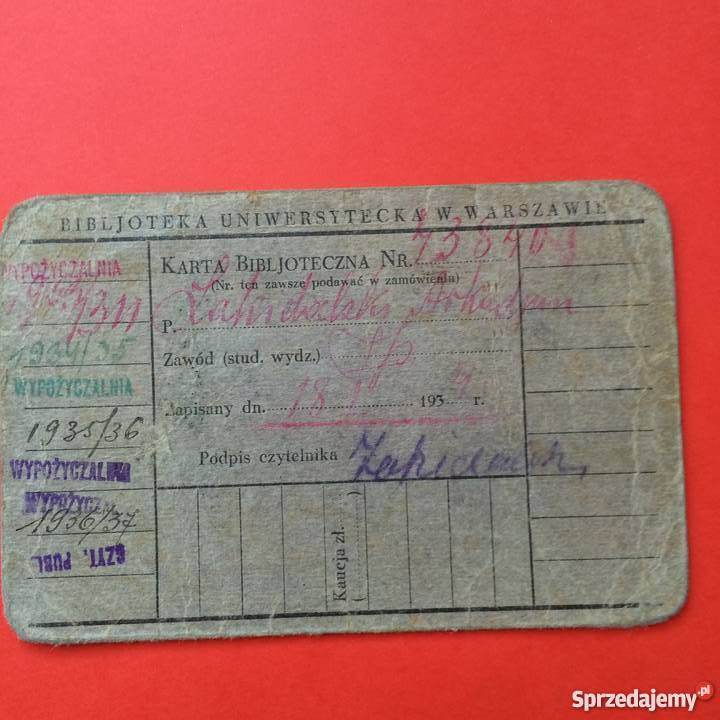 BIBLJOTEKA UNIWERSYTECKA W WARSZAWIE
WYPOŻYCZALNIA
1934/35
WYPOŻYCZALNIA
1935/36
WYPOŻYCZALNIA
WYPOŻYCZ
1936/37
CZYT. PUBL.
KARTA BIBLJOTECZNA NR.
(Nr. ten zawsze podawać w zamówieniu)
P.
Zawód (stud. wydz.)
Zapisany dn. 18 193 r.
Podpis czytelnika
Kaucja zł.
Sprzedajemy.pl